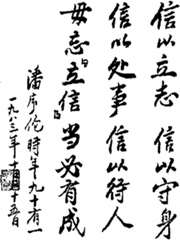 信以立志 信以守身
信以处事 信以待人
毋忘「立信」当必有成
潘序伦 時年九十有一
一九八三年十
十五日